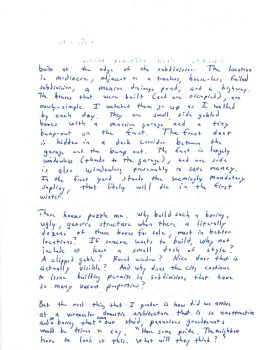 built at the edge of the subdivision. The location
is mediocre, adjacent to a treeless, house-less, failed
subdivision, a massive drainage pond, and a highway.
The homes that were built (and are occupied), are
overly-simple. I watched them go up as I walked
by each day. They are small side gabled
boxes with a massive garage and a tiny
bump-out on the front. The front door
is hidden in a dark corridor between the
garage and the bump out. The front is largely
windowless (thanks to the garage), and one side
is also windowless, presumably to save money.
In the front yard stands the seemingly mandatory
sapling, that likely will die in the first
winter.
These homes puzzle me. Why build such a boring,
ugly, generic structure when there are literally
dozens of these homes for sale, most in better
locations? If someone wants to build, why not
include at least a small dash of style?
A clipped gable? Round window? Nice door that is
actually visible? And why does the city continue
to issue building permits in subdivisions that have
so many vacant properties?
But the real thing that I ponder is how did we arrive
at a vernacular domestic architecture that is so unattractive
and boring that our staid, precious grandparents
would be driven to say, "Have some pride. The neighbors
have to look at this. What will they think?"